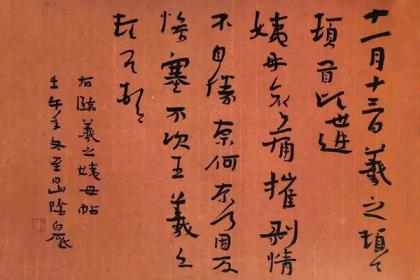 十一月十三日羲之頓
頓首頃遘
姨母哀哀痛摧剝情
不自勝奈何奈何因反
慘塞不次王羲之
頓首頓首
右臨羲之姨母帖
壬午年冬至山陰白砥